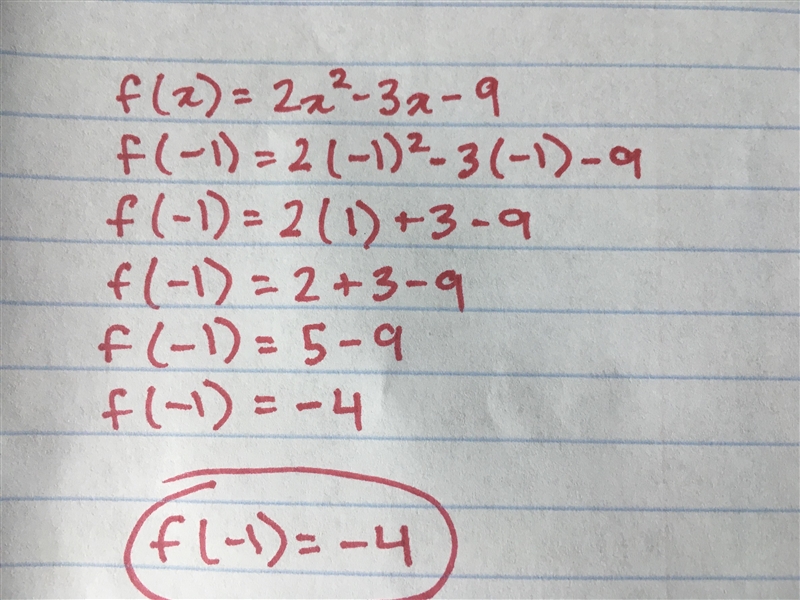 f(x) = 2x² - 3x - 9
f(-1) = 2(-1)² - 3(-1) - 9
f(-1) = 2(1) + 3 - 9
f(-1) = 2 + 3 - 9
f(-1) = 5 - 9
f(-1) = -4
f(-1) = -4